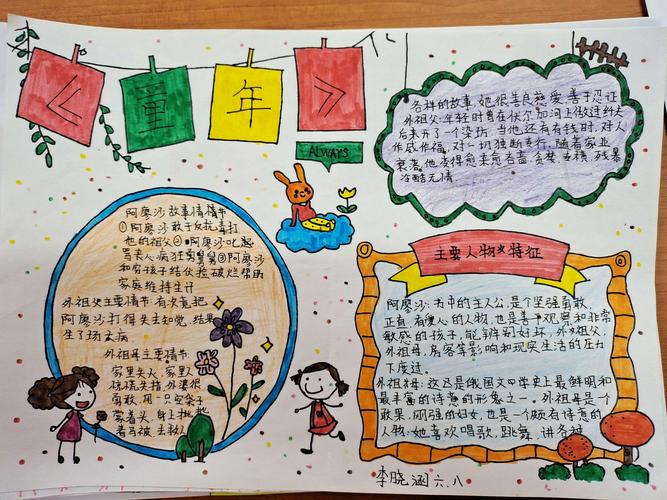 《童年》
ALWAYS
各样的故事,她很善良慈爱,善于忍让
外祖父:年轻时曾在伏尔加河上做过纤夫
后来开了一个染坊,当他还有有钱时,对人
作威作福,对一切独断专行,随着家业
衰落,他变得愈来愈吝啬,贪婪,专横,残暴
冷酷无情
阿廖沙故事情情节
①阿廖沙敢于反抗毒打
他的祖父②阿廖沙
③阿廖沙
和穷孩子结伙捡破烂帮助
家庭维持生计
外祖父主要情节:有次竟把
阿廖沙打得失去知觉,结果
生了场大病
外祖母主要情节:
家里失火,家里人
惊慌失措,外婆很
勇敢,用一只空袋子
蒙着头,身上披
着马被,去救人
主要人物及特征
阿廖沙:书中的主人公,是个坚强勇敢,
正直,有爱心的人物,也是善于观察和非常
敏感的孩子,能辨别好坏,外祖父
外祖母,房客等影响和现实生活的压力
下度过。
外祖母:这乃是俄国文学史上最鲜明和
最丰富的诗意的形象之一。外祖母是个
果,刚强的妇女,也是一个颇有诗意的
人物:她喜欢唱歌,跳舞,讲各种
李晓涵六.八